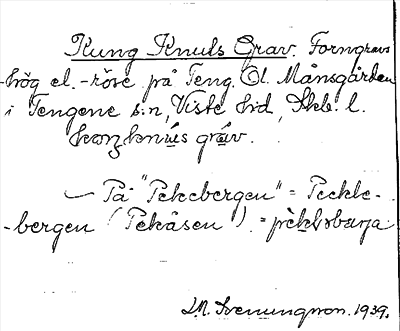 Kung Knuls Grav. Forngravs
-hög el. -röse på Teng. Ol. Månsgården
i Tengene s:n, Viste hd, Skb. l.
kɷŋknʉ́s grɑ̀v.
— På "Pekebergen" = Peckle-
-bergen (Pekåsen) =
M. Svenungsson. 1939.